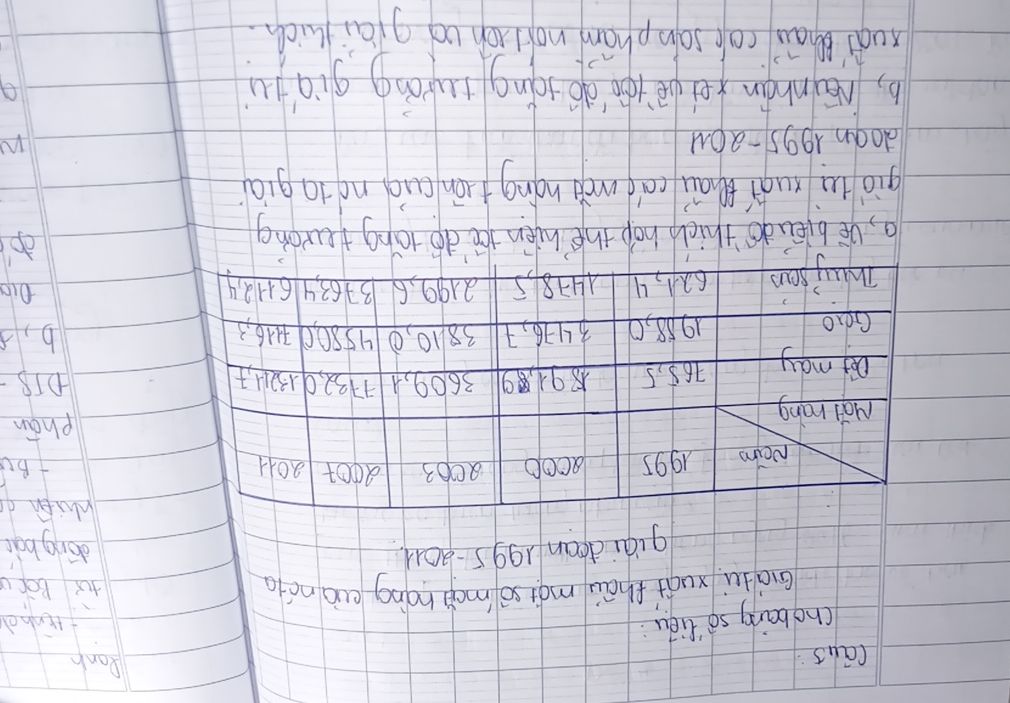 Câu 3:
Cho bảng số liệu:
Giá trị xuất khẩu một số mặt hàng của nc ta
giai đoạn 1995-2011.
Năm 1995 2000 2003 2007 2011
Mặt hàng
Dệt may 765,5 1891,9 3609,1 7732,0 13211,7
Gạo 1988,0 3476,7 3810,0 4580,0 7116,3
Thuỷ sản 621,4 1478,5 2199,6 3763,4 6112,4
a, Vẽ biểu đồ thích hợp thể hiện tốc độ tăng trưởng
giá trị xuất khẩu các mặt hàng trên của nc ta giai
đoạn 1995-2011
b, Nêu nhận xét về tốc độ tăng trưởng giá trị
xuất khẩu các sản phẩm nói trên và giải thích.